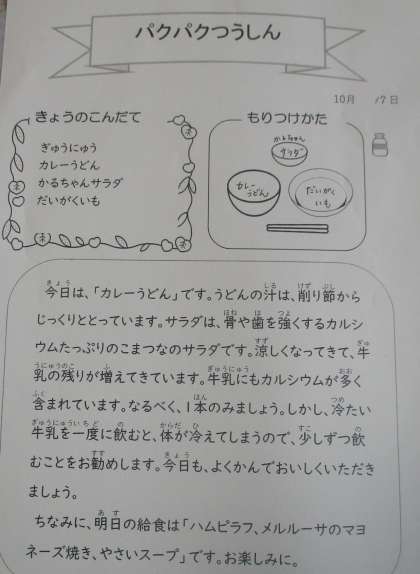 パクパクつうしん
10月 17日
きょうのこんだて
ぎゅうにゅう
カレーうどん
かるちゃんサラダ
だいがくいも
もりつけかた
かるちゃん
サラダ
カレー
うどん
だいがく
いも
今日は、「カレーうどん」です。うどんの汁は、削り節から
じっくりととっています。サラダは、骨や歯を強くするカルシ
ウムたっぷりのこまつなのサラダです。涼しくなってきて、牛
乳の残りが増えてきています。牛乳にもカルシウムが多く
含まれています。なるべく、1本のみましょう。しかし、冷たい
牛乳を一度に飲むと、体が冷えてしまうので、少しずつ飲
むことをお勧めします。今日も、よくかんでおいしくいただき
ましょう。
ちなみに、明日の給食は「ハムピラフ、メルルーサのマヨ
ネーズ焼き、やさいスープ」です。お楽しみに。